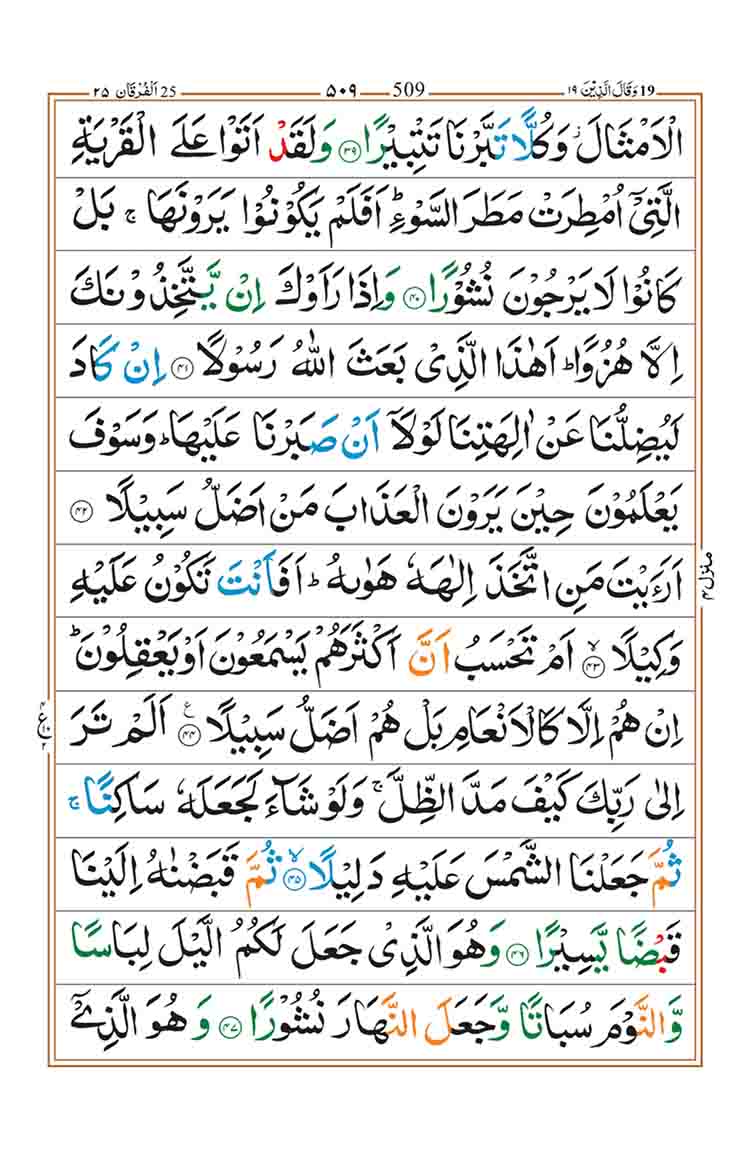 19 وَقَالَ الَّذِيْنَ ١٩ 509 ۵۰۹ 25 اَلْفُرْقَان ۲۵
الْاَمْثَالَ ؗ وَكُلًّا تَبَّرْنَا تَتْبِيْرًا ۝۳۹ وَلَقَدْ اَتَوْا عَلَى الْقَرْيَةِ
الَّتِيْۤ اُمْطِرَتْ مَطَرَ السَّوْءِ ؕ اَفَلَمْ يَكُوْنُوْا يَرَوْنَهَا ۚ بَلْ
كَانُوْا لَا يَرْجُوْنَ نُشُوْرًا ۝۴۰ وَاِذَا رَاَوْكَ اِنْ يَّتَّخِذُوْنَكَ
اِلَّا هُزُوًا ؕ اَهٰذَا الَّذِيْ بَعَثَ اللّٰهُ رَسُوْلًا ۝۴۱ اِنْ كَادَ
لَيُضِلُّنَا عَنْ اٰلِهَتِنَا لَوْلَاۤ اَنْ صَبَرْنَا عَلَيْهَا ؕ وَسَوْفَ
يَعْلَمُوْنَ حِيْنَ يَرَوْنَ الْعَذَابَ مَنْ اَضَلُّ سَبِيْلًا ۝۴۲
اَرَءَيْتَ مَنِ اتَّخَذَ اِلٰهَهٗ هَوٰىهُ ؕ اَفَاَنْتَ تَكُوْنُ عَلَيْهِ
منزل ۴
وَكِيْلًا ۙ۝۴۳ اَمْ تَحْسَبُ اَنَّ اَكْثَرَهُمْ يَسْمَعُوْنَ اَوْ يَعْقِلُوْنَ ؕ
اِنْ هُمْ اِلَّا كَالْاَنْعَامِ بَلْ هُمْ اَضَلُّ سَبِيْلًا ۝۴۴ ع اَلَمْ تَرَ
اِلٰى رَبِّكَ كَيْفَ مَدَّ الظِّلَّ ۚ وَلَوْ شَآءَ لَجَعَلَهٗ سَاكِنًا ۚ
ثُمَّ جَعَلْنَا الشَّمْسَ عَلَيْهِ دَلِيْلًا ۙ۝۴۵ ثُمَّ قَبَضْنٰهُ اِلَيْنَا
قَبْضًا يَّسِيْرًا ۝۴۶ وَهُوَ الَّذِيْ جَعَلَ لَكُمُ الَّيْلَ لِبَاسًا
وَّالنَّوْمَ سُبَاتًا وَّجَعَلَ النَّهَارَ نُشُوْرًا ۝۴۷ وَهُوَ الَّذِيْۤ